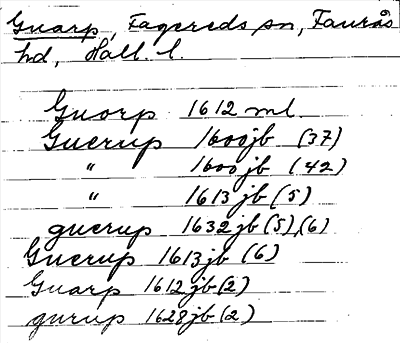 Gnarp, Fagereds sn, Faurås
hd, Hall. l.
Gnorp 1612 ml.
Gnerup 1600jb (37)
" 1600jb (42)
" 1613jb (5)
gnerup 1632jb (5), (6)
Gnerup 1613jb (6)
Gnarp 1612jb (2)
gnrup 1628jb (2)